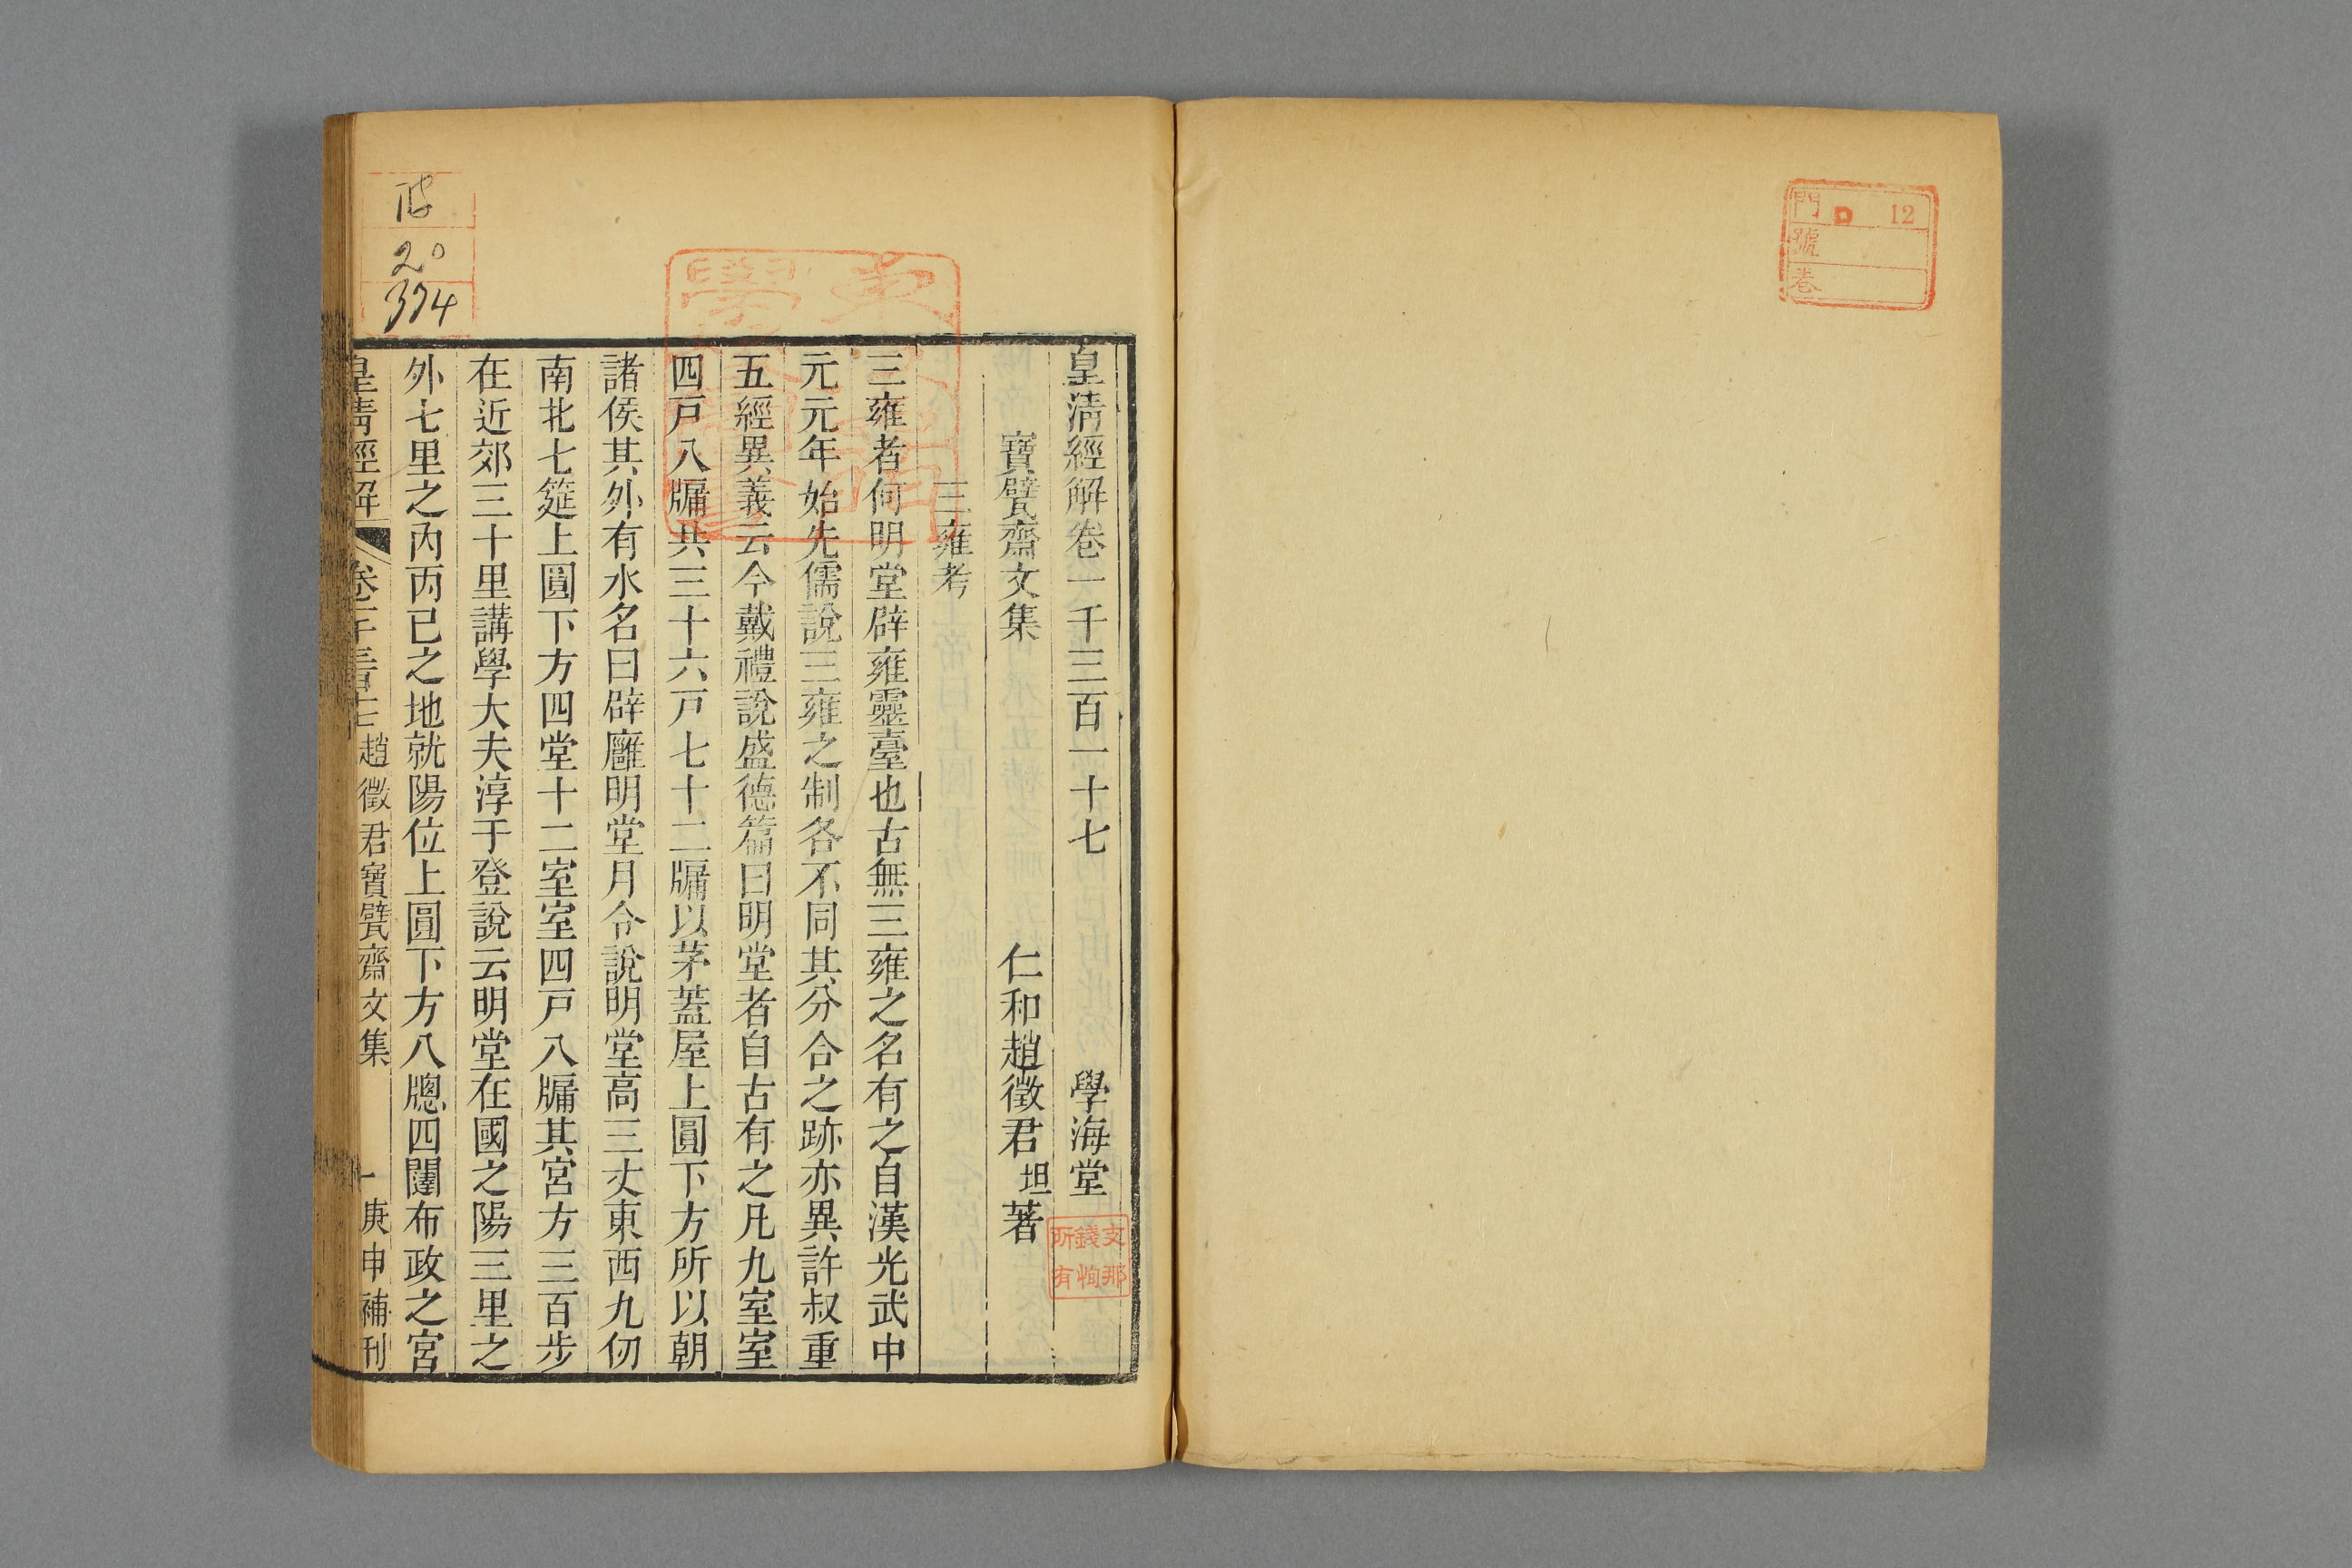 門 D 12
號
卷
皇淸經解卷一千三百一十七 學海堂
寶甓齋文集 仁和趙徵君坦著
三雍考
三雍者何明堂辟雍靈臺也古無三雍之名有之自漢光武中
元元年始先儒說三雍之制各不同其分合之跡亦異許叔重
五經異義云今戴禮說盛德篇曰明堂者自古有之凡九室室
四戸八牖共三十六戸七十二牖以茅蓋屋上圓下方所以朝
諸侯其外有水名曰辟廱明堂月令說明堂高三丈東西九仞
南北七筵上圓下方四堂十二室室四戸八牖其宮方三百步
在近郊三十里講學大夫淳于登說云明堂在國之陽三里之
外七里之內丙已之地就陽位上圓下方八牕四闥布政之宮
皇淸經解 卷一千三百十七 趙徵君寶甓齋文集 一 庚申補刊
支那
錢恂
所有
20
374